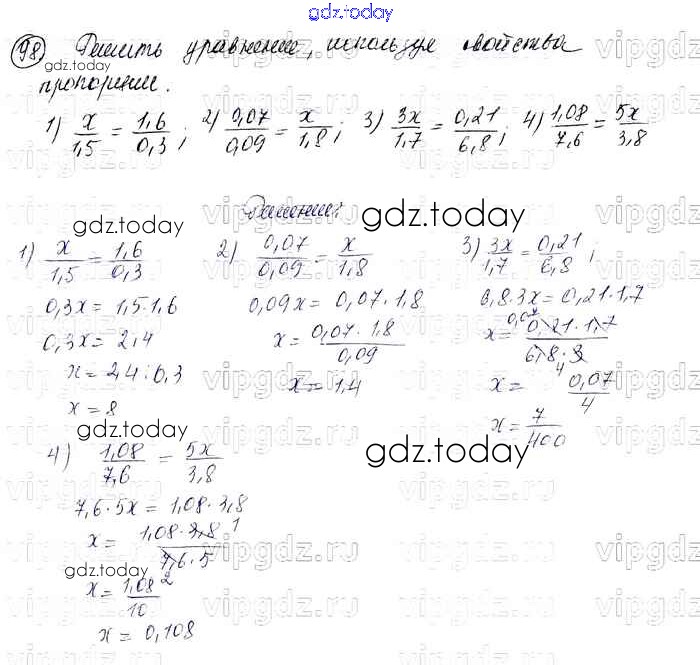 gdz.today
98 Решить уравнение, используя свойства
пропорции.
1) x/1,5 = 1,6/0,3; 2) 0,07/0,09 = x/1,8; 3) 3x/1,7 = 0,21/6,8; 4) 1,08/7,6 = 5x/3,8
Решение:
1) x/1,5 = 1,6/0,3
0,3x = 1,5·1,6
0,3x = 2,4
x = 2,4:0,3
x = 8
2) 0,07/0,09 = x/1,8
0,09x = 0,07·1,8
x = 0,07·1,8/0,09
x = 1,4
3) 3x/1,7 = 0,21/6,8;
6,8·3x = 0,21·1,7
x = 0,07 0,21·1,7/6,8·3 4
x = 0,07/4
x = 7/400
4) 1,08/7,6 = 5x/3,8
7,6·5x = 1,08·3,8
x = 1,08·3,8 1/7,6·5 2
x = 1,08/10
x = 0,108
gdz.today
gdz.today
gdz.today
gdz.today
gdz.today
vipgdz.ru